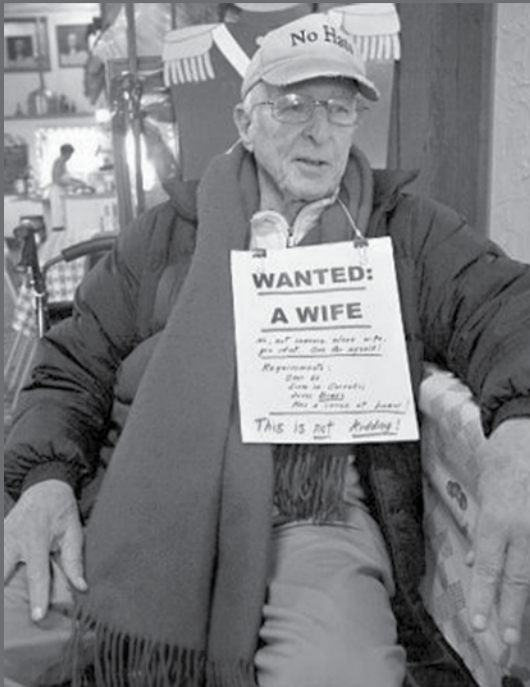 No Hate
WANTED:
A WIFE
No, not someone elses wife,
you idiot. One for myself!
Requirements:
Over 60
Lives in Corvallis
Loves
Has a sense of humor!
This is not Kidding!